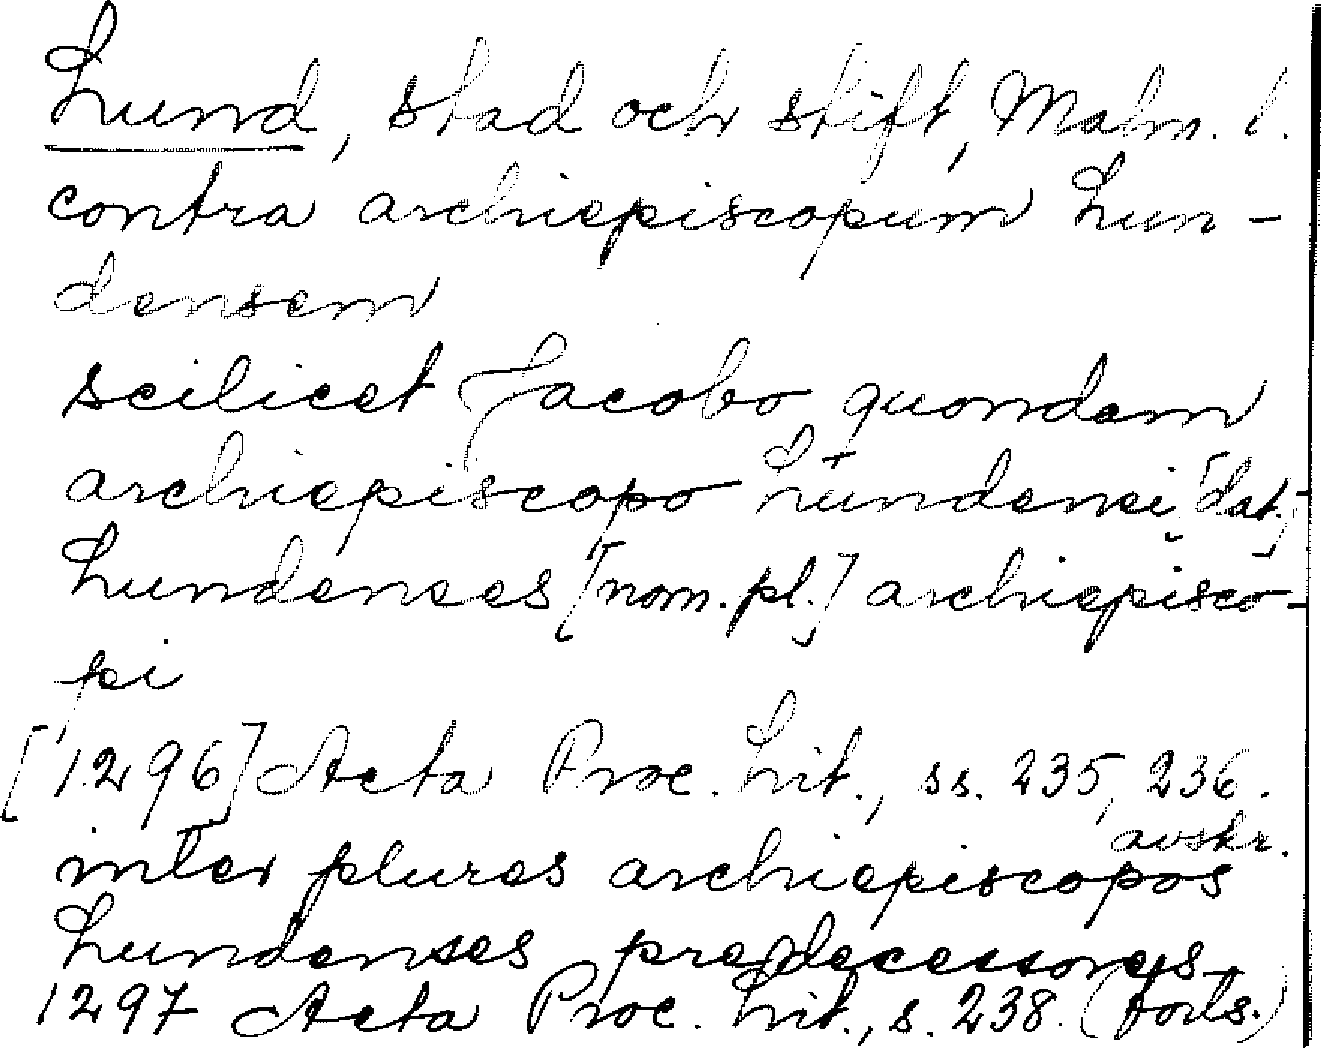 Lund, stad och stift, Malm. l.
contra archiepiscopum Lun-
densem
scilicet Jacobo quondam
archiepiscopo Lundensi [dat.]
Lundenses [nom. pl.] archiepisco-
pi
[1296] Acta Proc. Lit., ss. 235, 236.
avskr.
inter plures archiepiscopos
Lundenses predecessores
1297 Acta Proc. Lit., s. 238. (forts.)